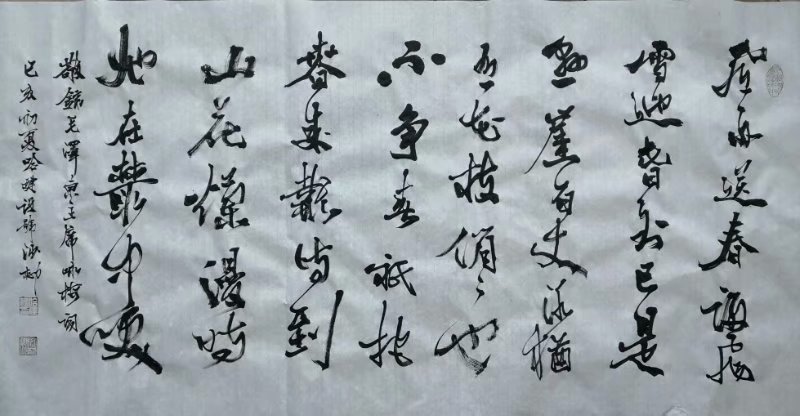 風雨送春歸飛
雪迎春到已是
懸崖百丈冰猶
有花枝俏〻也
不争春祇把
春来報待到
山花爛漫時
她在叢中笑
敬錄毛澤東主席咏梅詞
己亥初夏